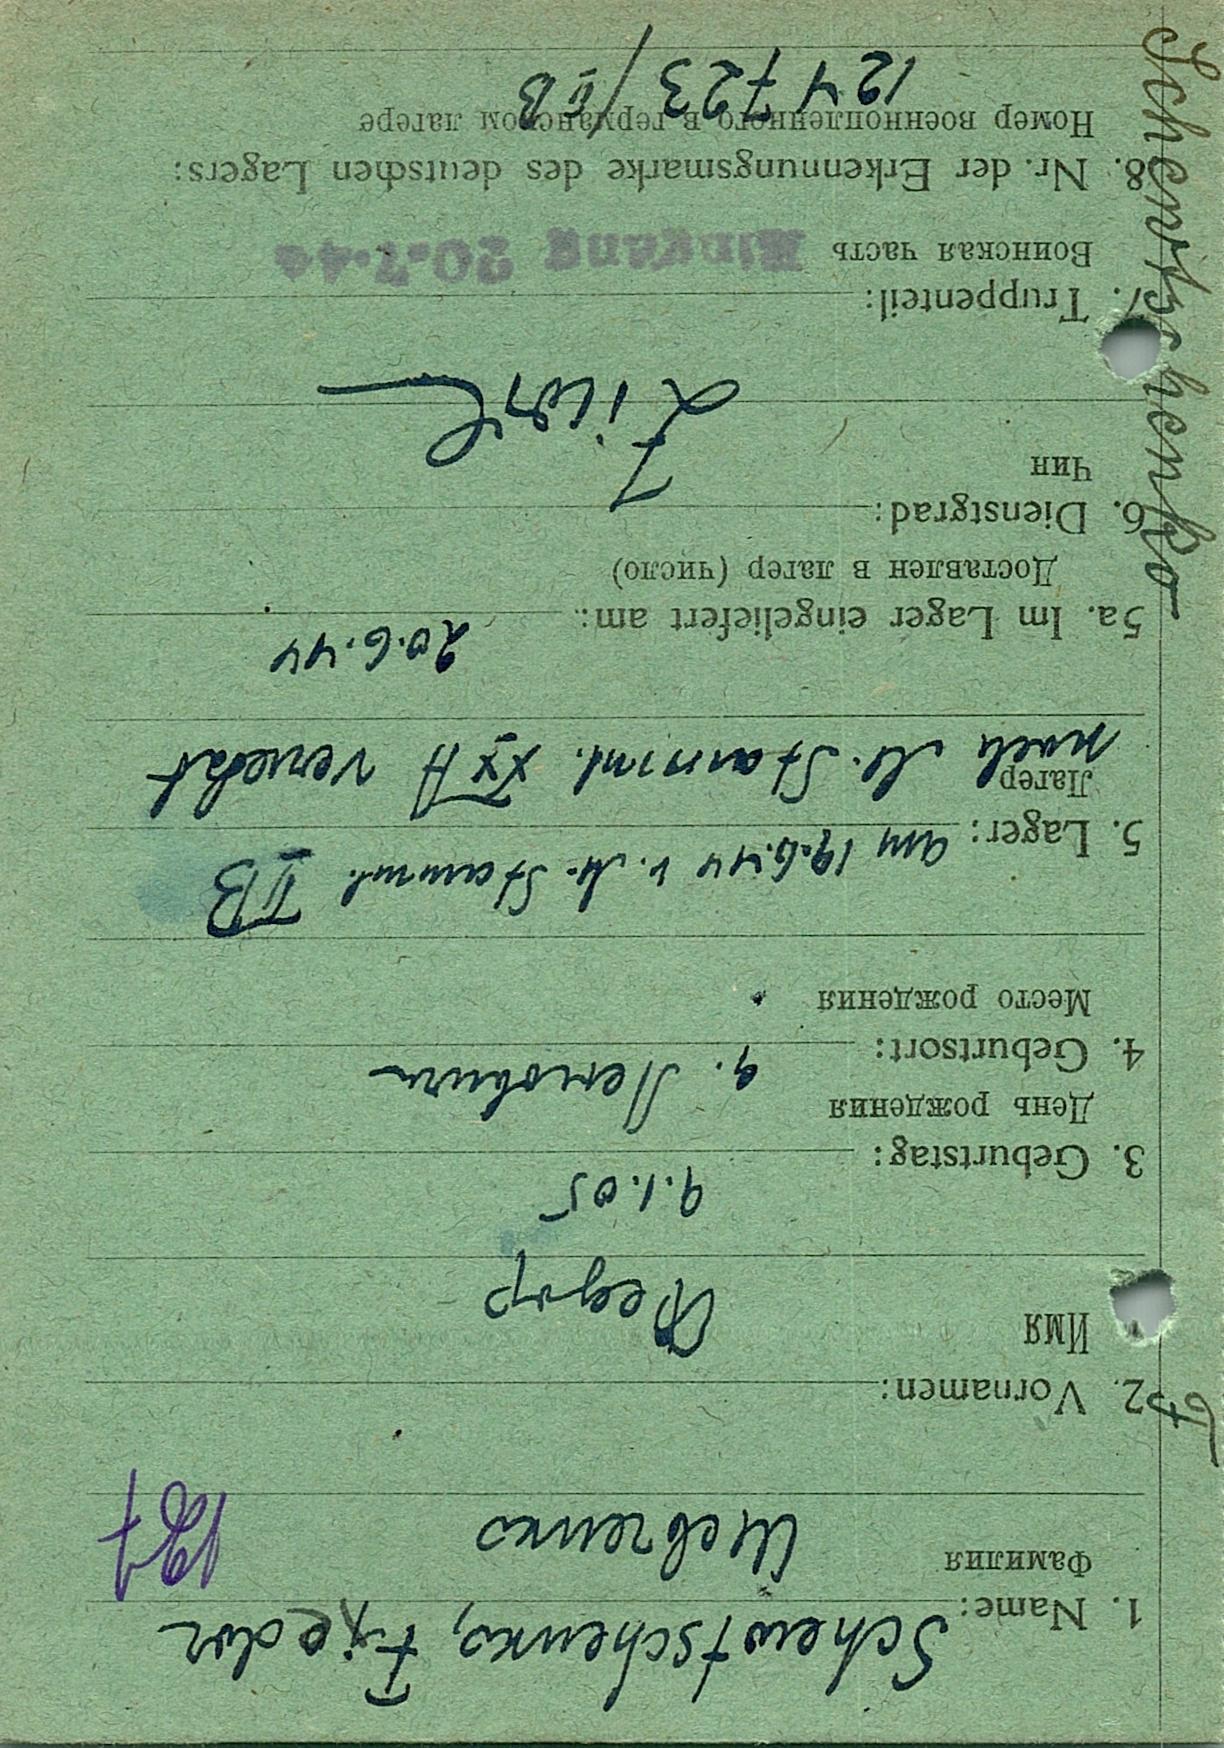 Schewtschenko, Fjedor
1. Name:
Фамилия
Шевченко
197
2. Vornamen:
Имя
Федор
3. Geburtstag:
9.1.05
День рождения
4. Geburtsort:
Место рождения
5. Lager:
am 19.6.44 v. M.-Stamml. IIB
Лагер
nach M.-Stamml. XXA versetzt
5a. Im Lager eingeliefert am:
20.6.44
Доставлен в лагер (число)
6. Dienstgrad:
Чин
Zivil
7. Truppenteil:
Воинская часть
Eingang 20.7.44
8. Nr. der Erkennungsmarke des deutschen Lagers:
Номер военнопленного в германском лагере
124723/IIB
Schewtschenko
F